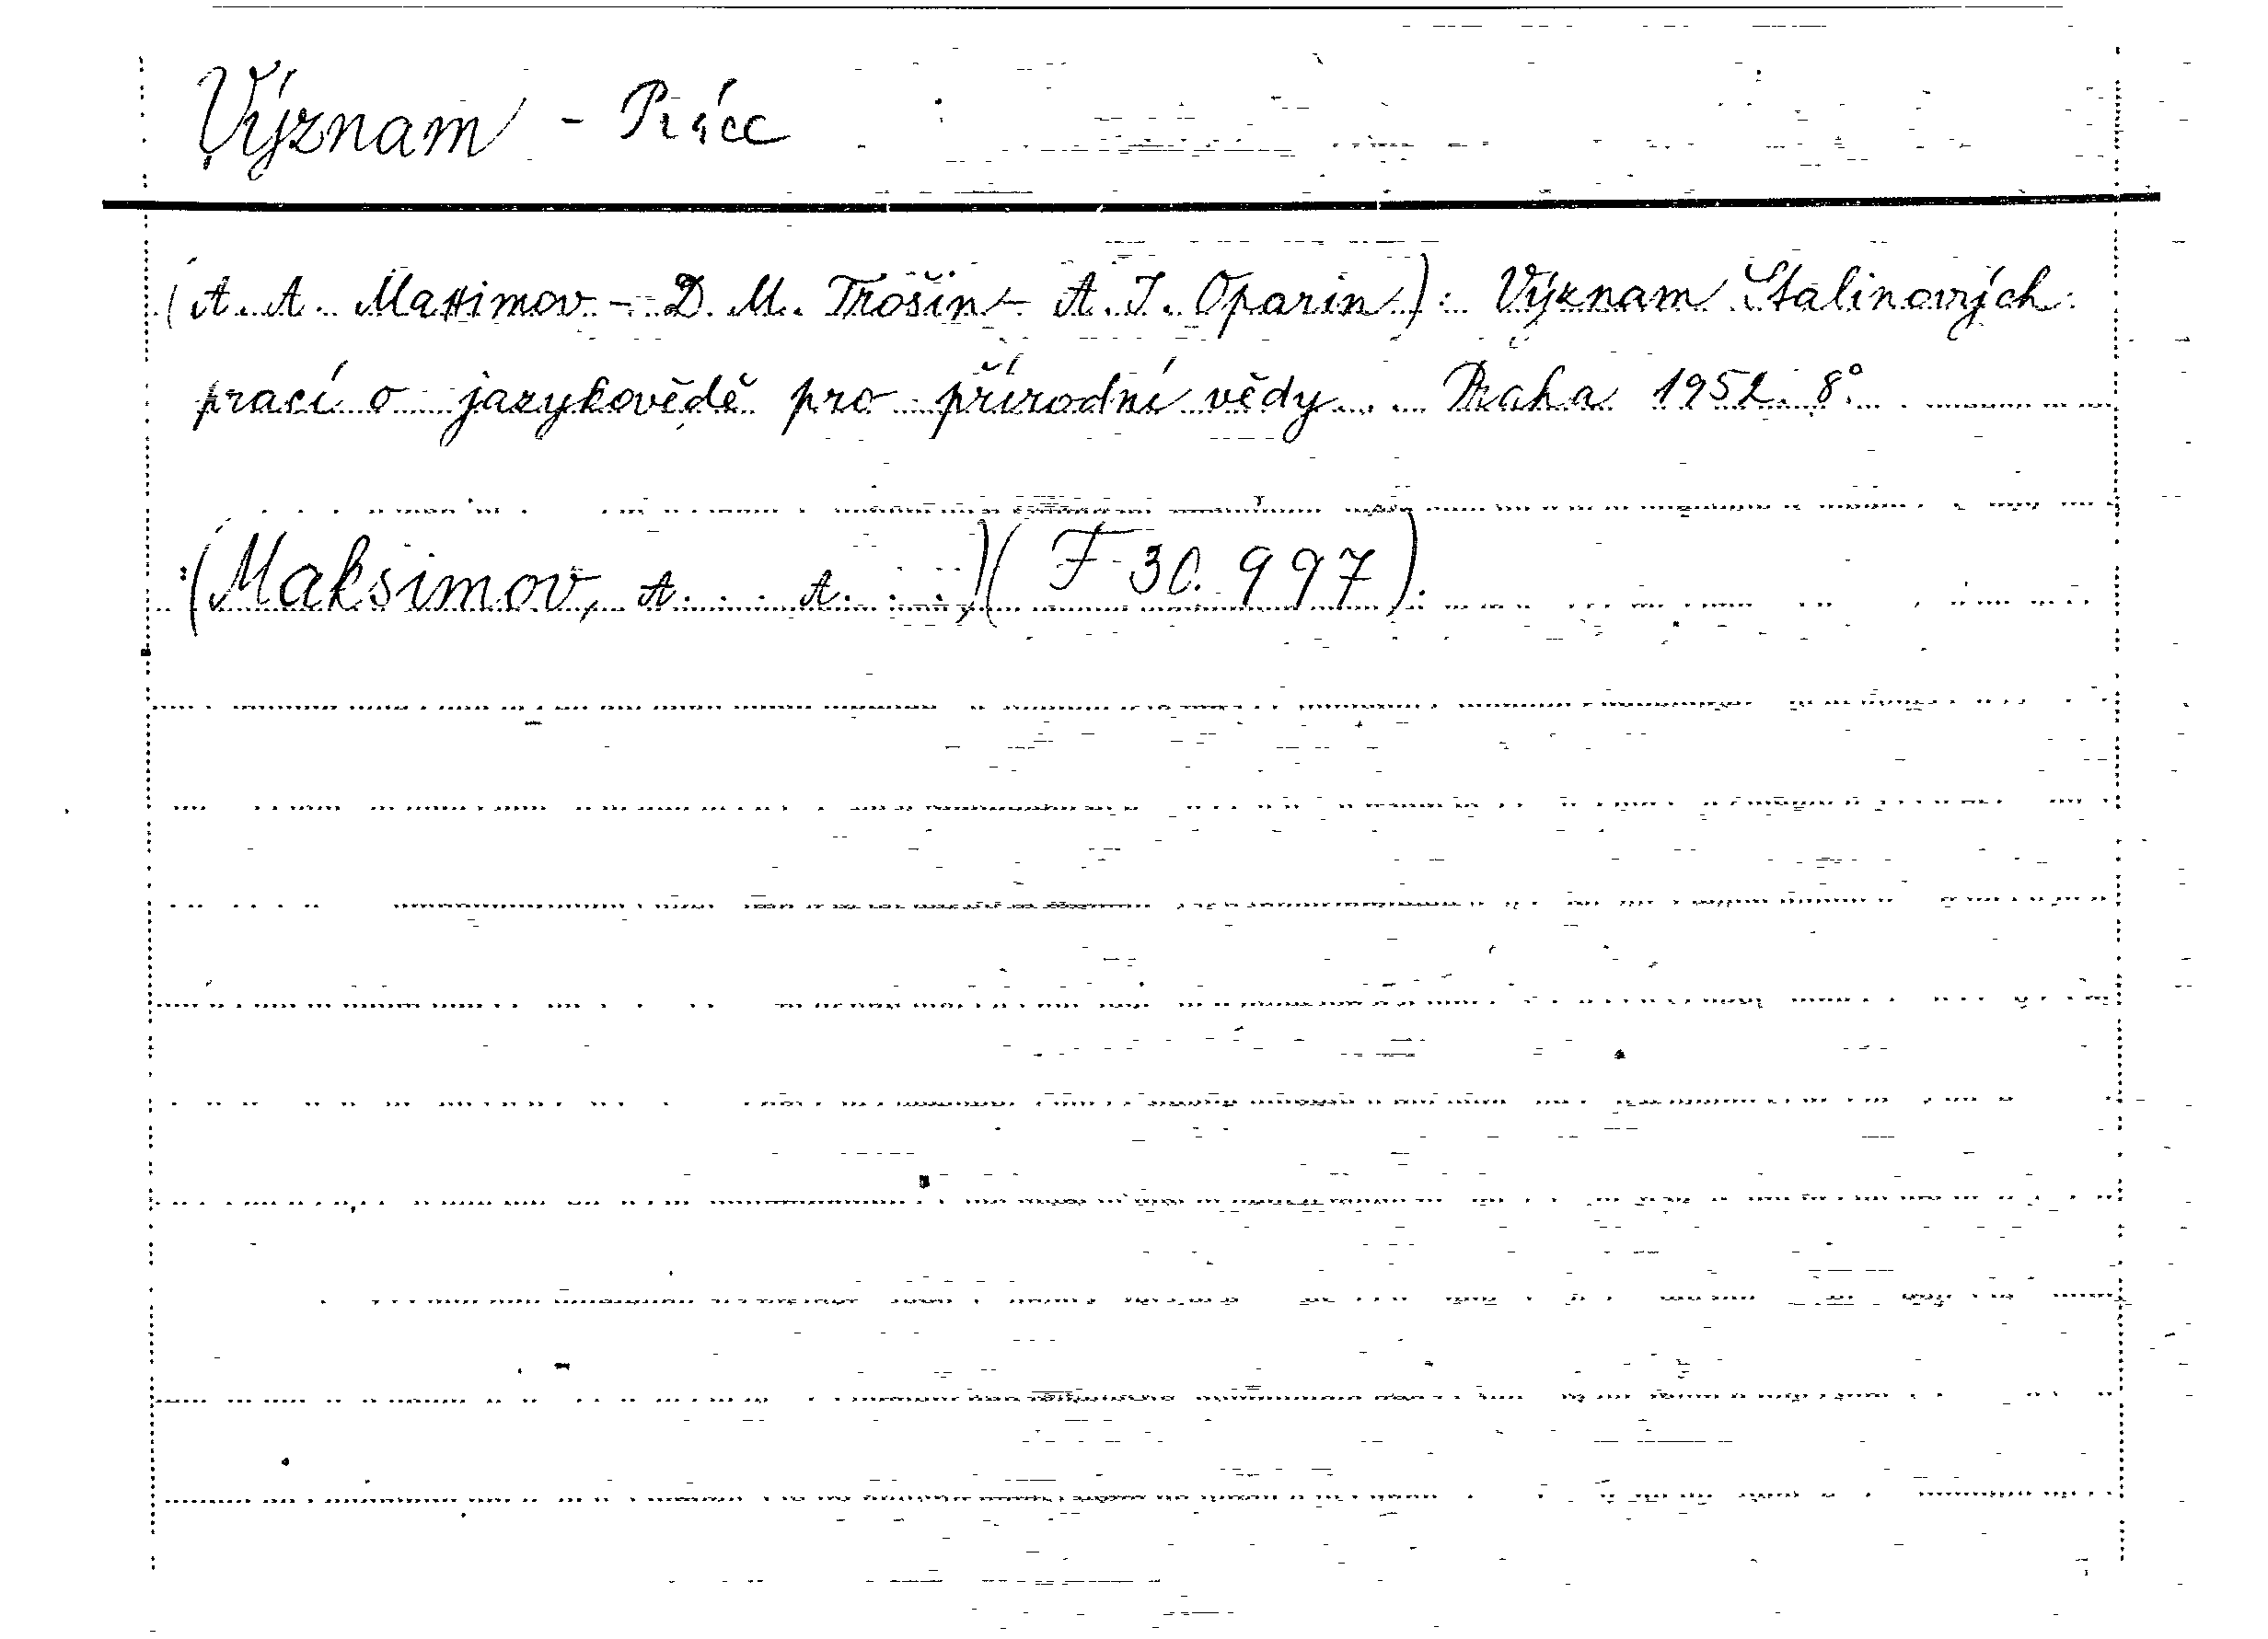 Význam - Práce
(A. A. Maximov - D. M. Trošin - A. I. Oparin): Význam Stalinových
prací o jazykovědě pro přírodní vědy. Praha 1952. 8°
(Maksimov, A. . . A. . .,)( F 30.997).